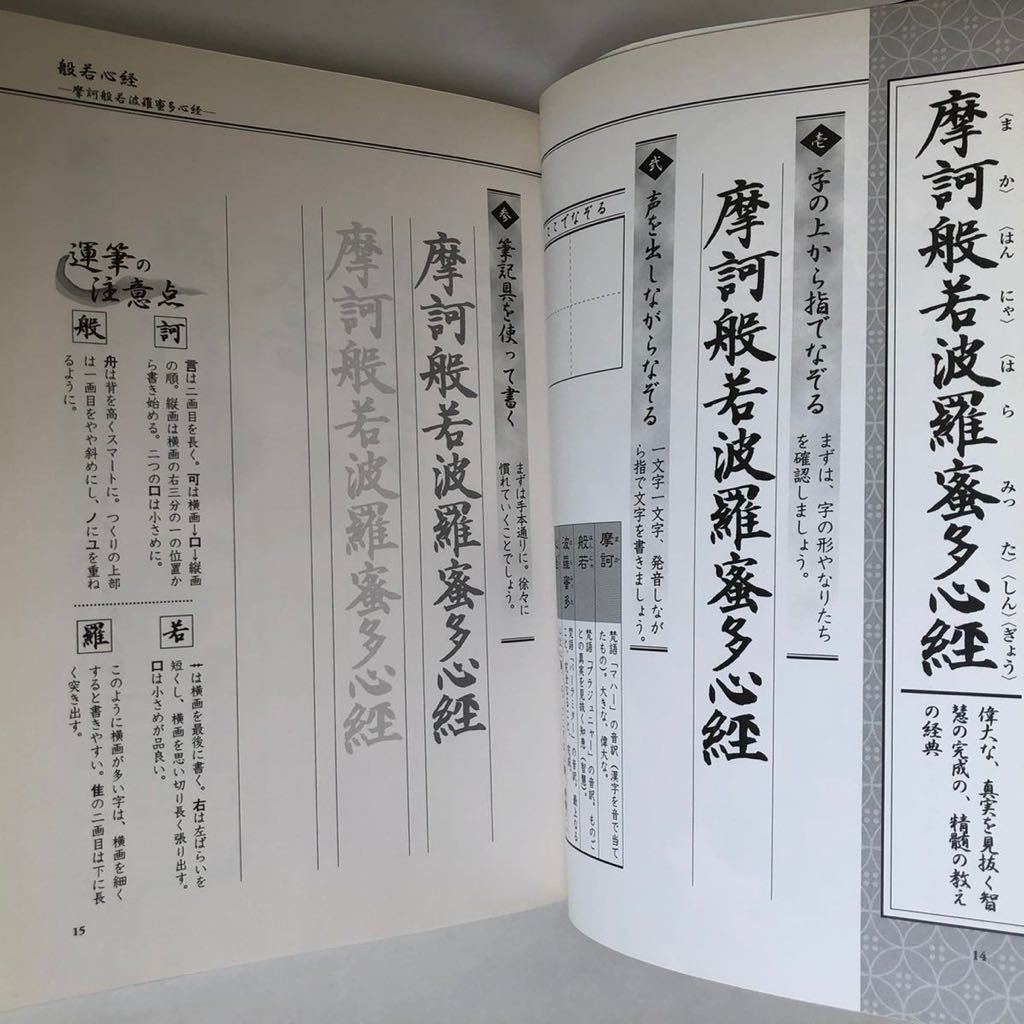 摩訶般若波羅蜜多心経
(ま)(か)(はん)(にゃ)(は)(ら)(みつ)(た)(しん)(ぎょう)
偉大な、真実を見抜く智
慧の完成の、精髄の教え
の経典
壱 字の上から指でなぞる
まずは、字の形やなりたち
を確認しましょう。
摩訶般若波羅蜜多心経
弐 声を出しながらなぞる
一文字一文字、発音しなが
ら指で文字を書きましょう。
ここでなぞる
摩訶
まか
梵語「マハー」の音訳(漢字を音で当て
たもの)。大きな、偉大な。
般若
はんにゃ
梵語「プラジュニャー」の音訳。ものご
との真実を見抜く知恵(智慧)。
波羅蜜多
梵語「パーラミター」の音訳。
14
般若心経
―摩訶般若波羅蜜多心経―
参 筆記具を使って書く
まずは手本通りに。徐々に
慣れていくことでしょう。
摩訶般若波羅蜜多心経
摩訶般若波羅蜜多心経
運筆の
注意点
訶
言は二画目を長く。可は横画→口→縦画
の順。縦画は横画の右三分の一の位置か
ら書き始める。二つの口は小さめに。
般
舟は背を高くスマートに。つくりの上部
は一画目をやや斜めにし、ノにユを重ね
るように。
若
艹は横画を最後に書く。右は左ばらいを
短くし、横画を思い切り長く張り出す。
口は小さめが品良い。
羅
このように横画が多い字は、横画を細く
すると書きやすい。隹の二画目は下に長
く突き出す。
15